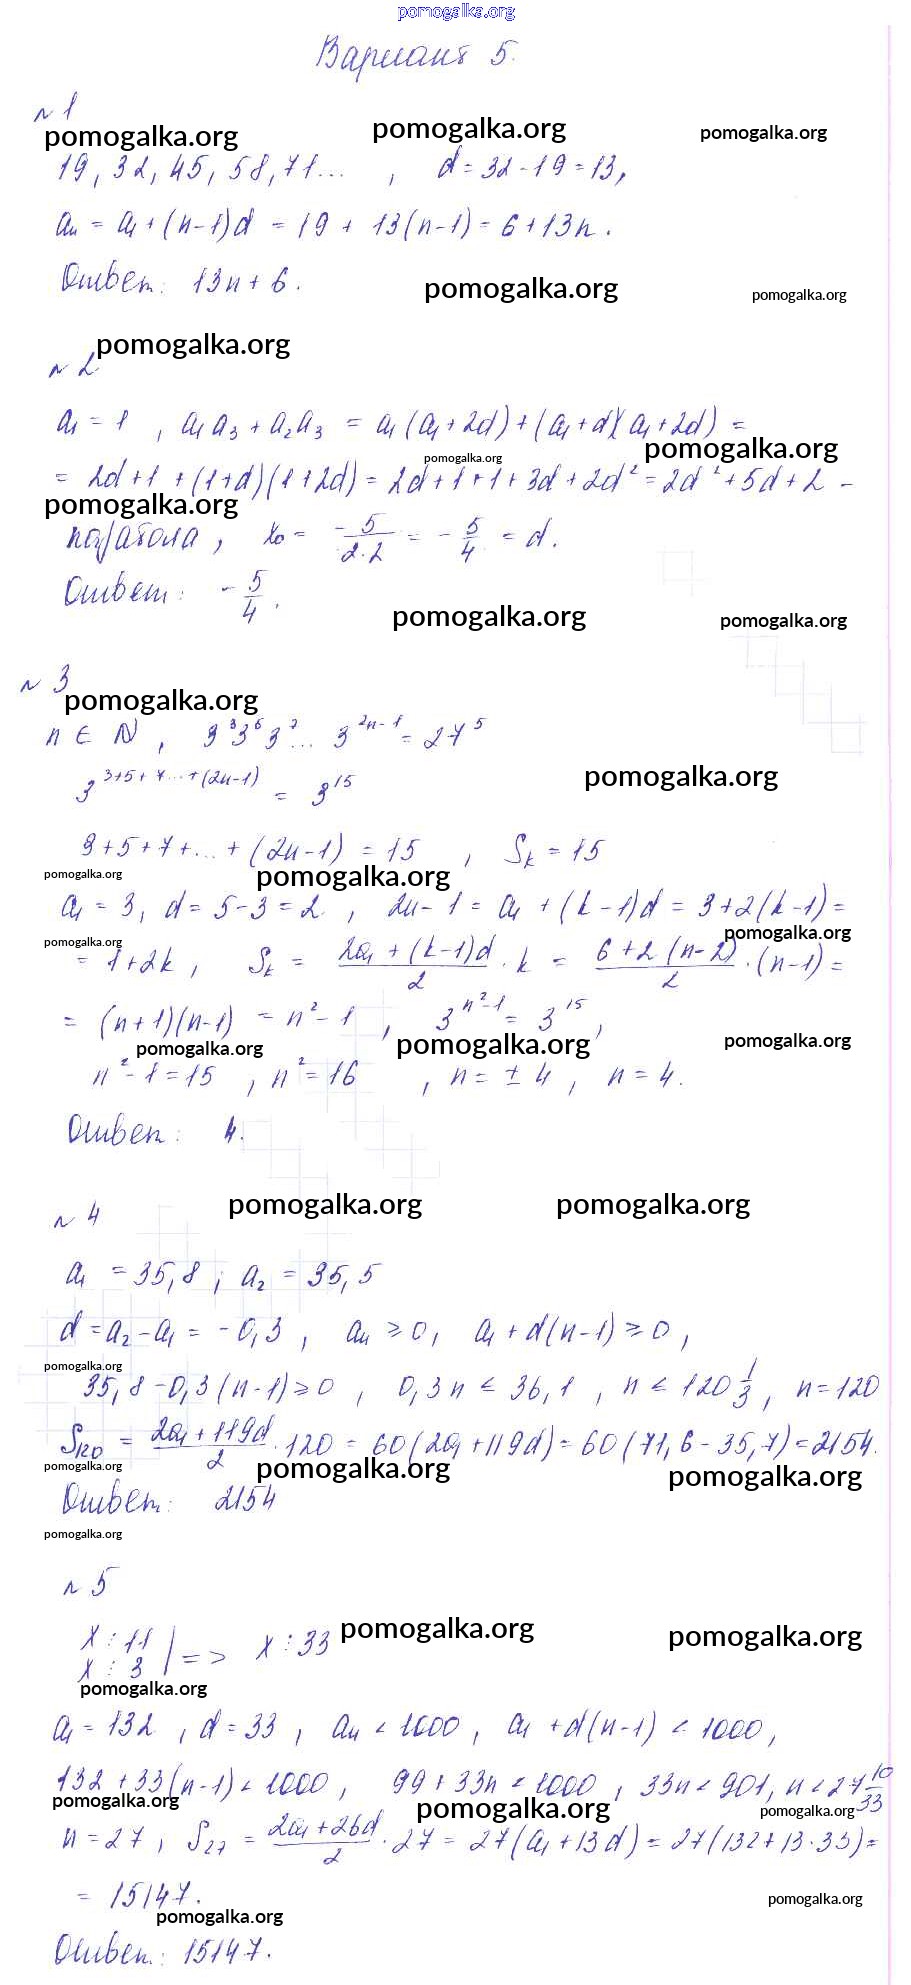 pomogalka.org
Вариант 5.
N 1
pomogalka.org pomogalka.org pomogalka.org
19, 32, 45, 58, 71... , d = 32 - 19 = 13,
aₙ = a₁ + (n-1)d = 19 + 13(n-1) = 6 + 13n.
Ответ: 13n + 6.
pomogalka.org pomogalka.org
pomogalka.org
N 2
a₁ = 1 , a₁a₃ + a₂a₃ = a₁(a₁ + 2d) + (a₁ + d)(a₁ + 2d) =
pomogalka.org pomogalka.org
= 2d + 1 + (1+d)(1+2d) = 2d + 1 + 1 + 3d + 2d² = 2d² + 5d + 2 -
pomogalka.org
парабола, x₀ = -5/2·2 = -5/4 = d.
Ответ: -5/4.
pomogalka.org pomogalka.org
N 3
pomogalka.org
n ∈ N , 3³3⁵3⁷... 3²ⁿ⁻¹ = 27⁵
pomogalka.org
3^(3+5+7...+(2n-1)) = 3¹⁵
3+5+7+...+(2n-1) = 15 , Sₖ = 15
pomogalka.org pomogalka.org
a₁ = 3, d = 5-3 = 2 , 2n-1 = a₁ + (k-1)d = 3+2(k-1) =
pomogalka.org pomogalka.org
= 1+2k , Sₖ = (2a₁ + (k-1)d)/2 · k = (6+2(n-2))/2 · (n-1) =
= (n+1)(n-1) = n² - 1 , 3^(n²-1) = 3¹⁵ ,
pomogalka.org pomogalka.org pomogalka.org
n² - 1 = 15 , n² = 16 , n = ± 4 , n = 4.
Ответ: 4.
pomogalka.org pomogalka.org
N 4
a₁ = 35,8 ; a₂ = 35,5
d = a₂ - a₁ = -0,3 , aₙ ≥ 0, a₁ + d(n-1) ≥ 0 ,
pomogalka.org
35,8 - 0,3(n-1) ≥ 0 , 0,3n ≤ 36,1 , n ≤ 120 1/3 , n = 120
S₁₂₀ = (2a₁ + 119d)/2 · 120 = 60(2a₁ + 119d) = 60(71,6 - 35,7) = 2154.
pomogalka.org pomogalka.org pomogalka.org
Ответ: 2154
pomogalka.org
N 5
x ⋮ 11
x ⋮ 3 | => x ⋮ 33
pomogalka.org pomogalka.org
pomogalka.org
a₁ = 132 , d = 33 , aₙ < 1000 , a₁ + d(n-1) < 1000,
132 + 33(n-1) < 1000 , 99 + 33n < 1000 , 33n < 901, n < 27 10/33
pomogalka.org pomogalka.org pomogalka.org
n = 27 , S₂₇ = (2a₁ + 26d)/2 · 27 = 27(a₁ + 13d) = 27(132 + 13·33) =
= 15147.
pomogalka.org pomogalka.org
Ответ: 15147.